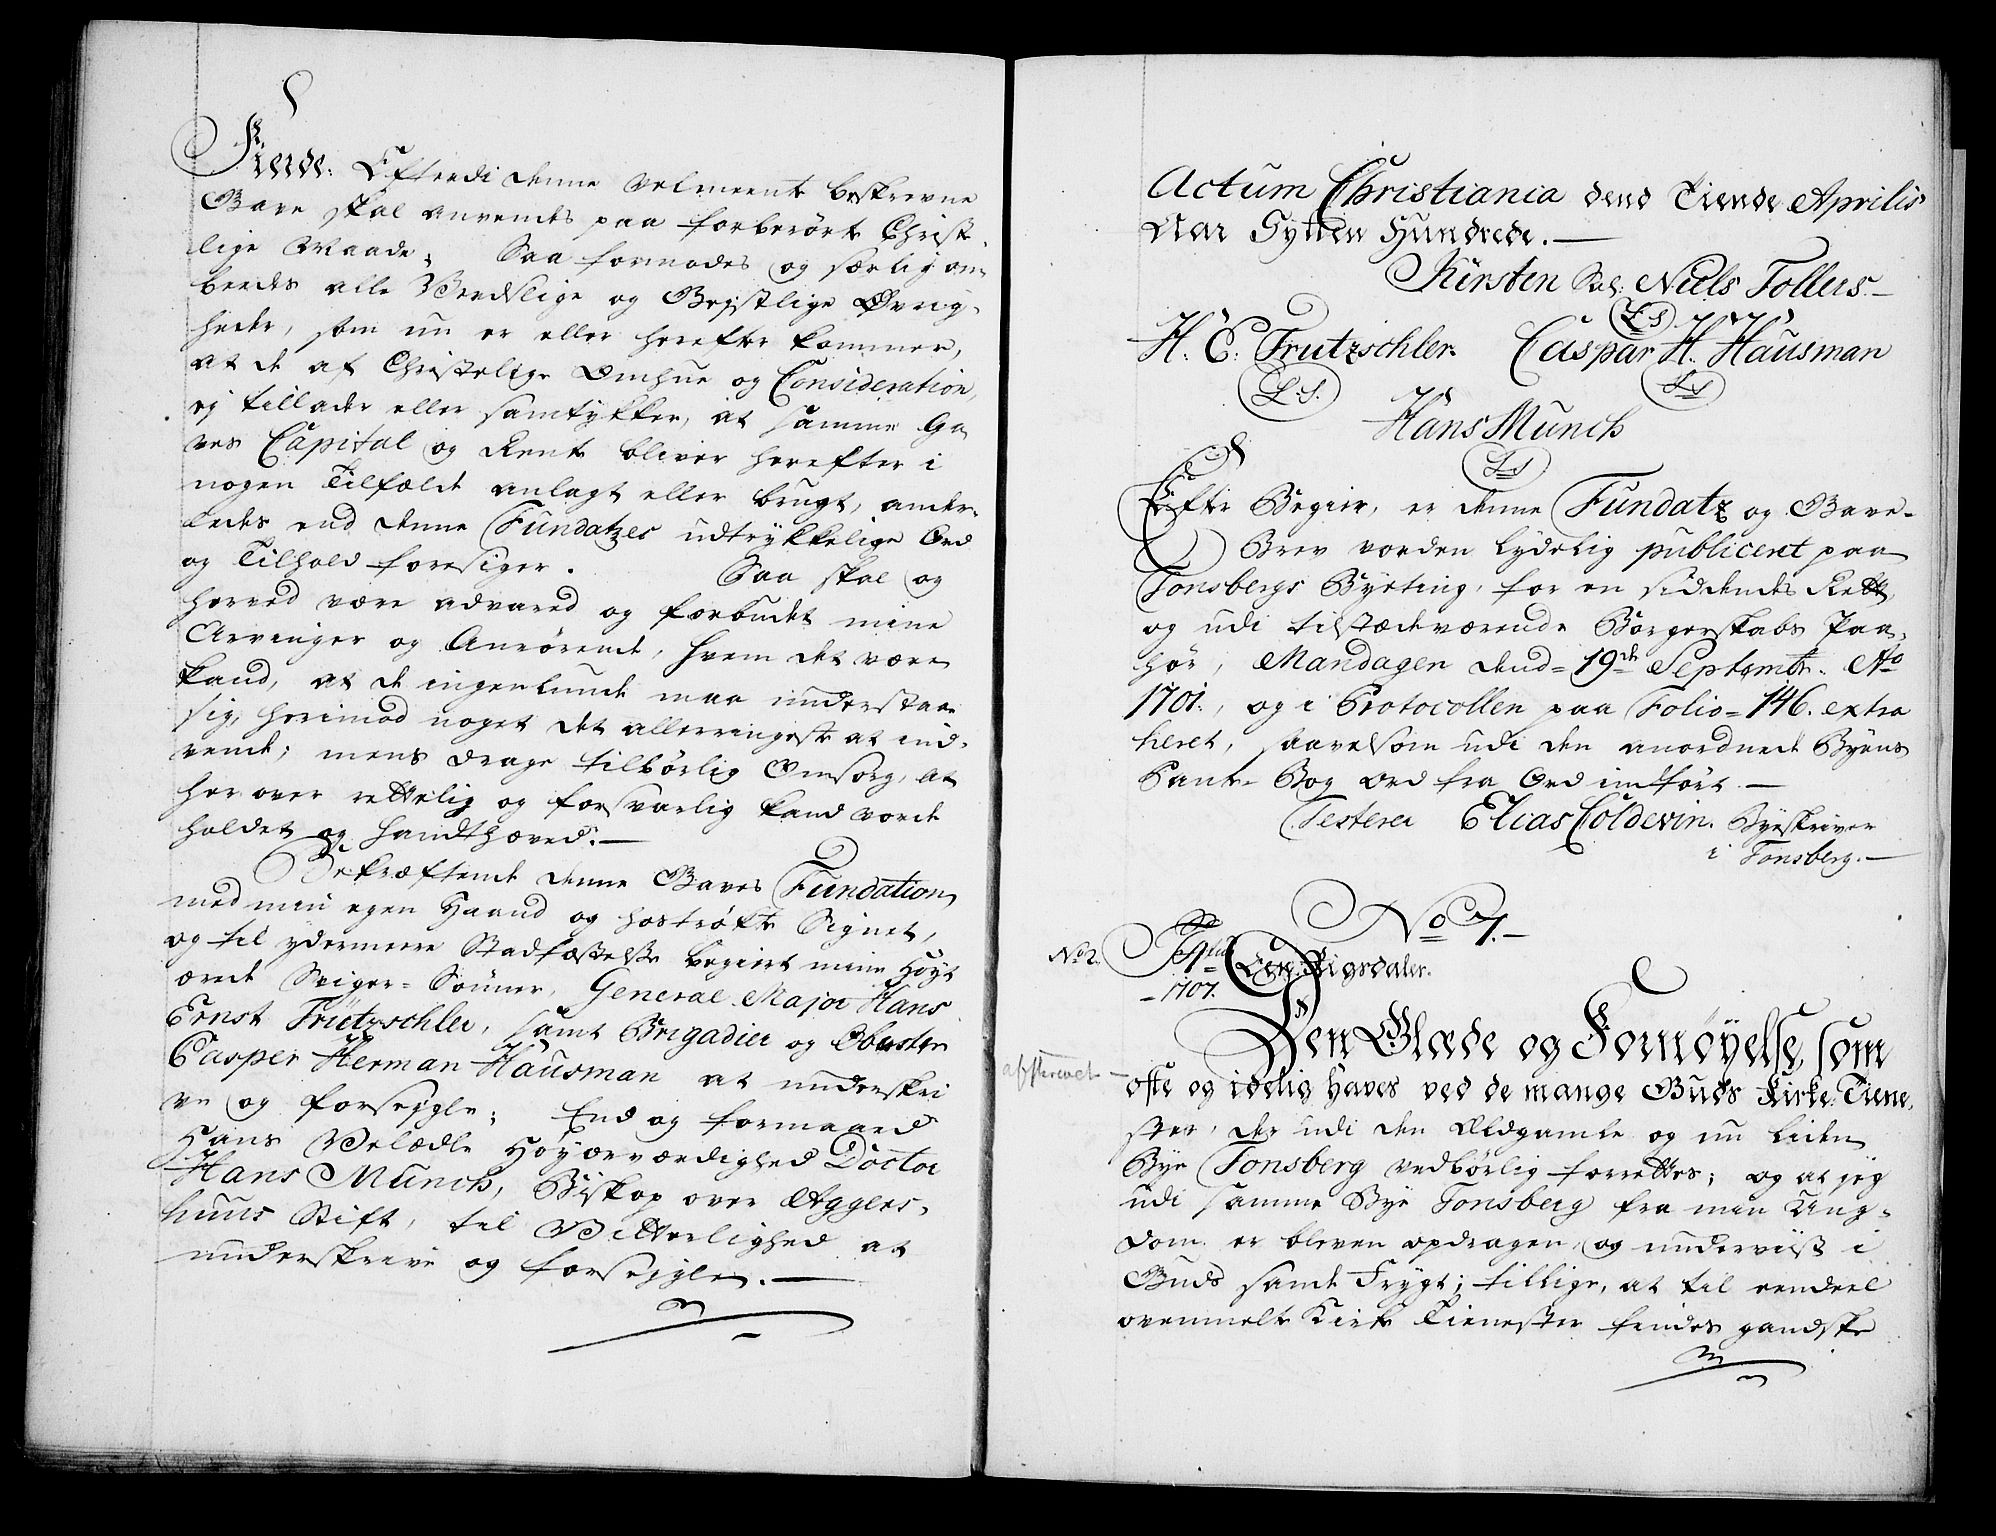 Fierde: Efterdi denne velmeente beskrevne
Gave skal anvendes paa forberørte Christ-
lige Maade; Saa formodes og særlig om-
beedes alle Verdslige og Gejstlige Øvrig-
heder, som nu er eller herefter kommer,
at de af Christelige Omhue og Consideration,
ej tillader eller samtykker, at samme Ga-
ves Capital og Rente bliver herefter i
nogen Tilfælde anlagt eller brugt, ander-
ledes end denne Fundatzes udtrykkelige Ord
og Tilhold foresiger. Saa skal og
herved være advared og forbudet mine
Arvinger og Anrørende, hvem det være
kand, at de ingenlunde maa understaae
sig, herimod noget det allerringeste at ind-
vende; mens drage tilbørlig Omsorg, at
her over rettelig og forsvarlig kand vorde
holdet og handthæved.—
Bekræftende denne Gaves Fundation
med min egen Haand og hostrøkte Signet,
og til ydermeere Stadfæstelse begiert mine Høyt
ærede Sviger-Sønner, General-Major Hans
Ernst Trützschler, samt Brigadier og Obrister
Casper Herman Hausman at underskri
ve og forsegle; End og formaaed
Hans Velædle Høyærværdighed Doctor
Hans Munch, Biskop over Aggers-
huus Stift, til Vitterlighed at
underskrive og forsegle.—
Actum Christiania dend Tiende Aprilis
Aar Sytten Hundrede.—
Kirsten Sal: Niels Tollers.—
L S
H. E. Trutzschler. Caspar H. Hausman
L. S. L S
Hans Munch
L S
Efter Begier, er denne Fundatz og Gave-
Brev vorden lydelig publiceret paa
Tonsbergs Byeting, for en siddendes Rett,
og udi tilstædeværende Borgerskabs Paa-
hør, Mandagen dend 19de Septembr. Ao
1701., og i Protocollen paa Folio 146. extra
heret, saavelsom udi den anordnede Byens
Pante-Bog Ord fra Ord indført.—
Testerer Elias Coldevin. Byeskriver
i Tonsberg.—
No 7.—
No 2.
1707.
Rigsdaler.
Den Glæde og Fornøyelse, som
afskrevet—
ofte og idelig haves ved de mange Guds Kirke-Tiene-
ster, der udi den Ældgamle og nu liden
Bye Tonsberg vedbørlig forrettes; og at jeg
udi samme Bye Tonsberg fra min Ung-
dom er bleven opdragen, og underviist i
Guds sande Frygt; tillige, at til eendeel
ovenmelte Kirke Tienester findes gandske